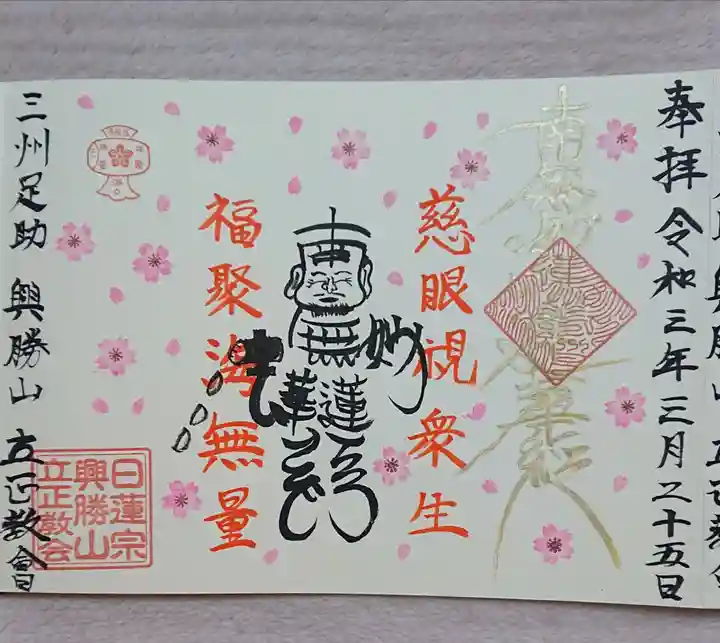 奉拝 令和三年三月二十五日
南無妙法蓮華経
慈眼視衆生
南無妙法蓮華経
福聚海無量
三州足助 興勝山 立正教會
日蓮宗
興勝山
立正教会